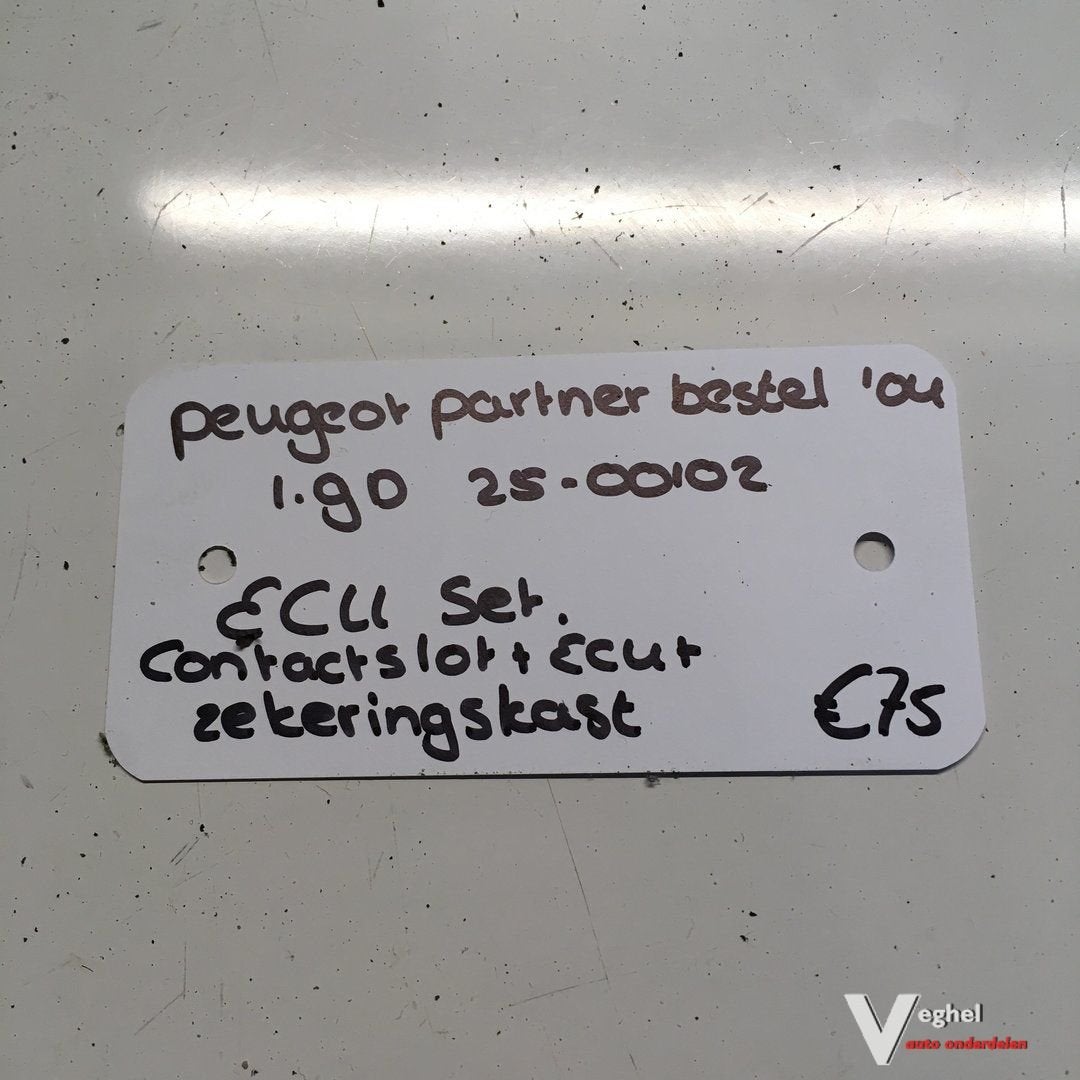 peugeot partner bestel '04
1.9D 25-00102
ECU Set.
Contactslot + Ecu +
zekeringskast
€75
Veghel
auto onderdelen